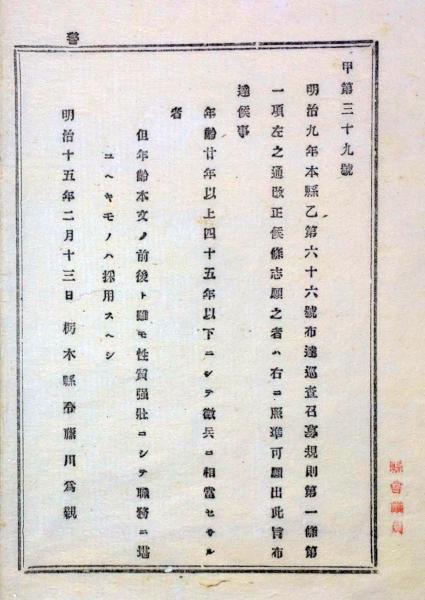 警
甲第三十九號
明治九年本縣乙第六十六號布達巡査召募規則第一條第
一項左之通改正候條志願之者ハ右ニ照準可願出此旨布
達候事
年齡廿年以上四十五年以下ニシテ徵兵ニ相當セサル
者
但年齡本文ノ前後ト雖モ性質强壯ニシテ職務ニ堪
ユヘキモノハ採用スヘシ
明治十五年二月十三日 栃木縣令藤川爲親
縣會議員